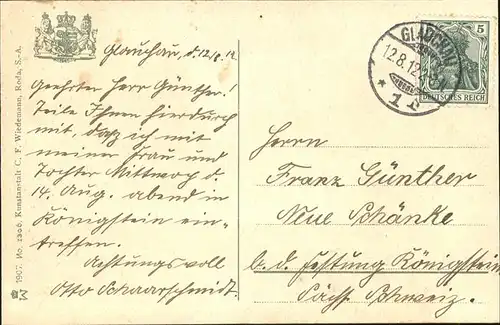 Glauchau, d. 12/8. 12
Geehrter Herr Günther!
Teile Ihnen hierdurch
mit, daß ich mit
meiner Frau und
Tochter Mittwoch d.
14. Aug. abend in
Königstein ein-
treffen.
Achtungsvoll
Otto Schaarschmidt.
GLAUCHAU
12.8.12
* 1
5
DEUTSCHES REICH
Herrn
Franz Günther
Neue Schänke
b. d. Festung Königstein
Sächs. Schweiz.
1907. No. 2806. Kunstanstalt C. F. Wiedemann, Roda, S.-A.